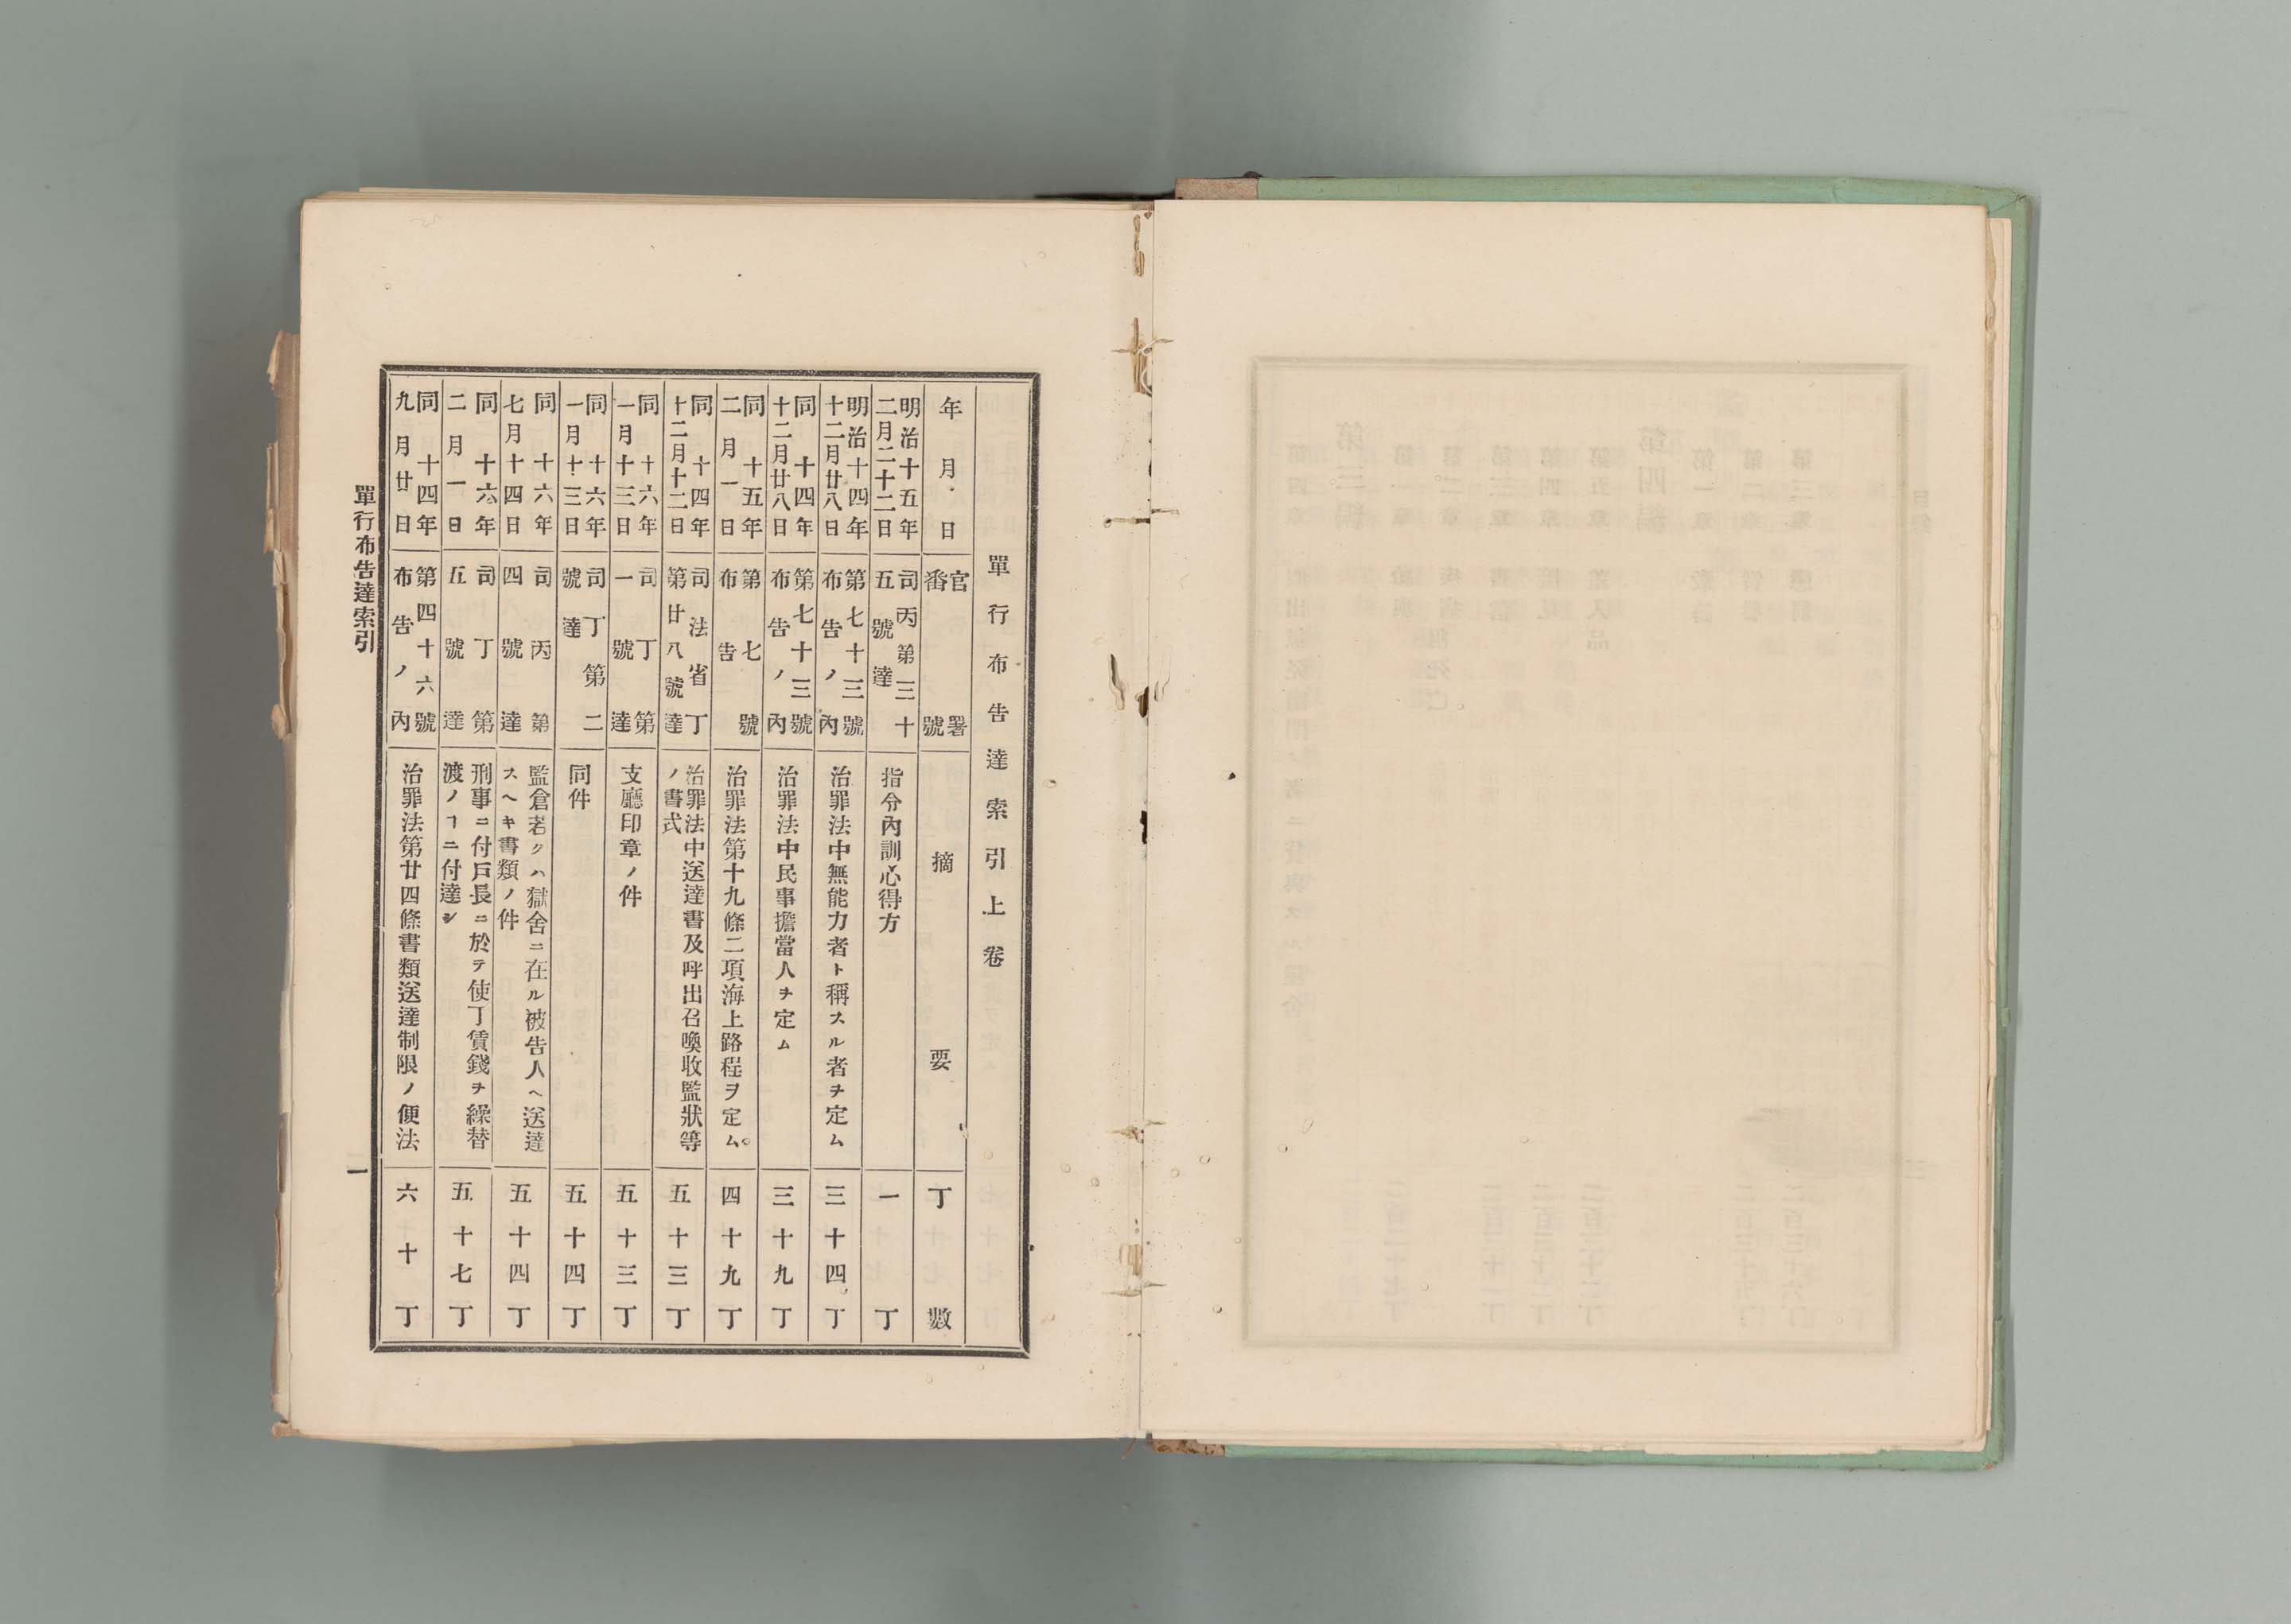 單行布告達索引上卷
年月日 官署番號 摘要 丁數
明治十五年二月二十二日 司丙第三十五號達 指令內訓心得方 一丁
明治十四年十二月廿八日 第七十三號布告ノ內 治罪法中無能力者ト稱スル者ヲ定ム 三十四丁
同十四年十二月廿八日 第七十三號布告ノ內 治罪法中民事擔當人ヲ定ム 三十九丁
同十五年二月一日 第七號布告 治罪法第十九條二項海上路程ヲ定ム 四十九丁
同十四年十二月十二日 司法省丁第廿八號達 治罪法中送達書及呼出召喚收監狀等ノ書式 五十三丁
同十六年一月十三日 司丁第一號達 支廳印章ノ件 五十三丁
同十六年一月十三日 司丁第二號達 同件 五十四丁
同十六年七月十四日 司丙第四號達 監倉若クハ獄舍ニ在ル被告人ヘ送達スヘキ書類ノ件 五十四丁
同十六年二月一日 司丁第五號達 刑事ニ付戶長ニ於テ使丁賃錢ヲ繰替渡ノヿニ付達シ 五十七丁
同十四年九月廿日 第四十六號布告ノ內 治罪法第廿四條書類送達制限ノ便法 六十丁
單行布告達索引
一